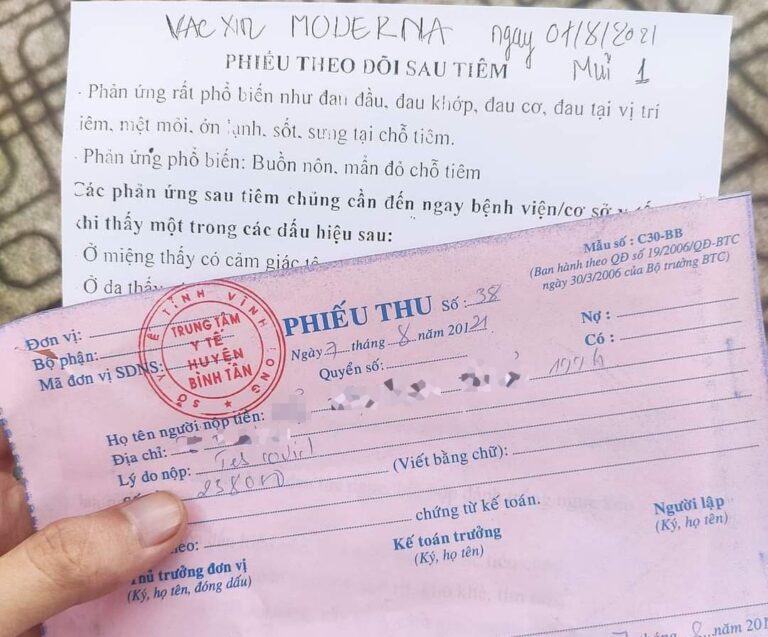 VAC XIN MODERNA ngày 07/8/2021
PHIẾU THEO DÕI SAU TIÊM Mũi 1
- Phản ứng rất phổ biến như đau đầu, đau khớp, đau cơ, đau tại vị trí
tiêm, mệt mỏi, ớn lạnh, sốt, sưng tại chỗ tiêm.
- Phản ứng phổ biến: Buồn nôn, mẩn đỏ chỗ tiêm
Các phản ứng sau tiêm chủng cần đến ngay bệnh viện/cơ sở
khi thấy một trong các dấu hiệu sau:
Ở miệng thấy có cảm giác
Ở da thấy
Mẫu số : C30-BB
(Ban hành theo QĐ số 19/2006/QĐ-BTC
ngày 30/3/2006 của Bộ trưởng BTC)
Đơn vị:
Bộ phận:
Mã đơn vị SDNS:
SỞ Y TẾ TỈNH VĨNH LONG
TRUNG TÂM
Y TẾ
HUYỆN
BÌNH TÂN
PHIẾU THU Số : 38
Ngày 7 tháng 8 năm 20121
Quyển số:
Nợ :
Có :
Họ tên người nộp tiền:
Địa chỉ:
Lý do nộp: Tes covid
238000 (Viết bằng chữ):
chứng từ kế toán.
Thủ trưởng đơn vị
(Ký, họ tên, đóng dấu)
Kế toán trưởng
(Ký, họ tên)
Người lập
(Ký, họ tên)
7 tháng 8 năm 201